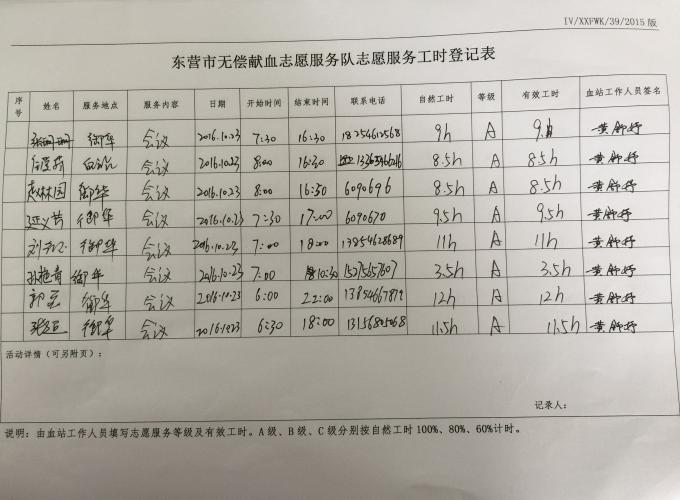 IV/XXFWK/39/2015 版
东营市无偿献血志愿服务队志愿服务工时登记表
序号 姓名 服务地点 服务内容 日期 开始时间 结束时间 联系电话 自然工时 等级 有效工时 血站工作人员签名
御华 会议 2016.10.23 7:30 16:30 18254612568 9h A 9h
会议 2016.10.23 8:00 16:30 8.5h A 8.5h
袁林园 御华 会议 2016.10.23 8:00 16:30 6090696 8.5h A 8.5h
御华 会议 2016.10.23 7:30 17:00 6090670 9.5h A 9.5h
御华 会议 2016.10.23 7:00 18:00 13854628689 11h A 11h
孙艳青 御华 会议 2016.10.23 7:00 10:30 3.5h A 3.5h
御华 会议 2016.10.23 6:00 22:00 12h A 12h
御华 会议 2016.10.23 6:30 18:00 13156805068 11.5h A 11.5h
活动详情（可另附页）：
记录人：
说明：由血站工作人员填写志愿服务等级及有效工时。A 级、B 级、C 级分别按自然工时 100%、80%、60%计时。